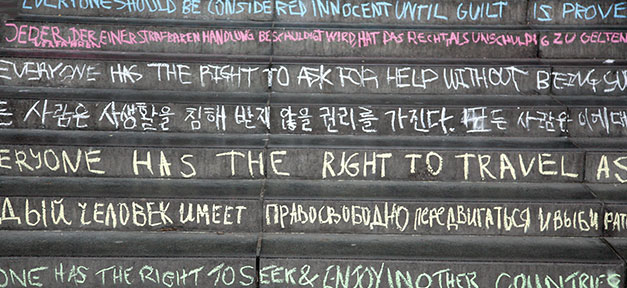 EVERYONE SHOULD BE CONSIDERED INNOCENT UNTIL GUILT IS PROVE
JEDER, DER EINER STRAFBAREN HANDLUNG BESCHULDIGT WIRD HAT DAS RECHT, ALS UNSCHULDIG ZU GELTEN
EVERYONE HAS THE RIGHT TO ASK FOR HELP WITHOUT BEING
든 사람은 사생활을 침해 받지 않을 권리를 가진다. 모든 사람은 이에 대
ERYONE HAS THE RIGHT TO TRAVEL AS
ДЫЙ ЧЕЛОВЕК ИМЕЕТ ПРАВО СВОБОДНО ПЕРЕДВИГАТЬСЯ И ВЫБИРАТ
ONE HAS THE RIGHT TO SEEK & ENJOY IN OTHER COUNTRIES